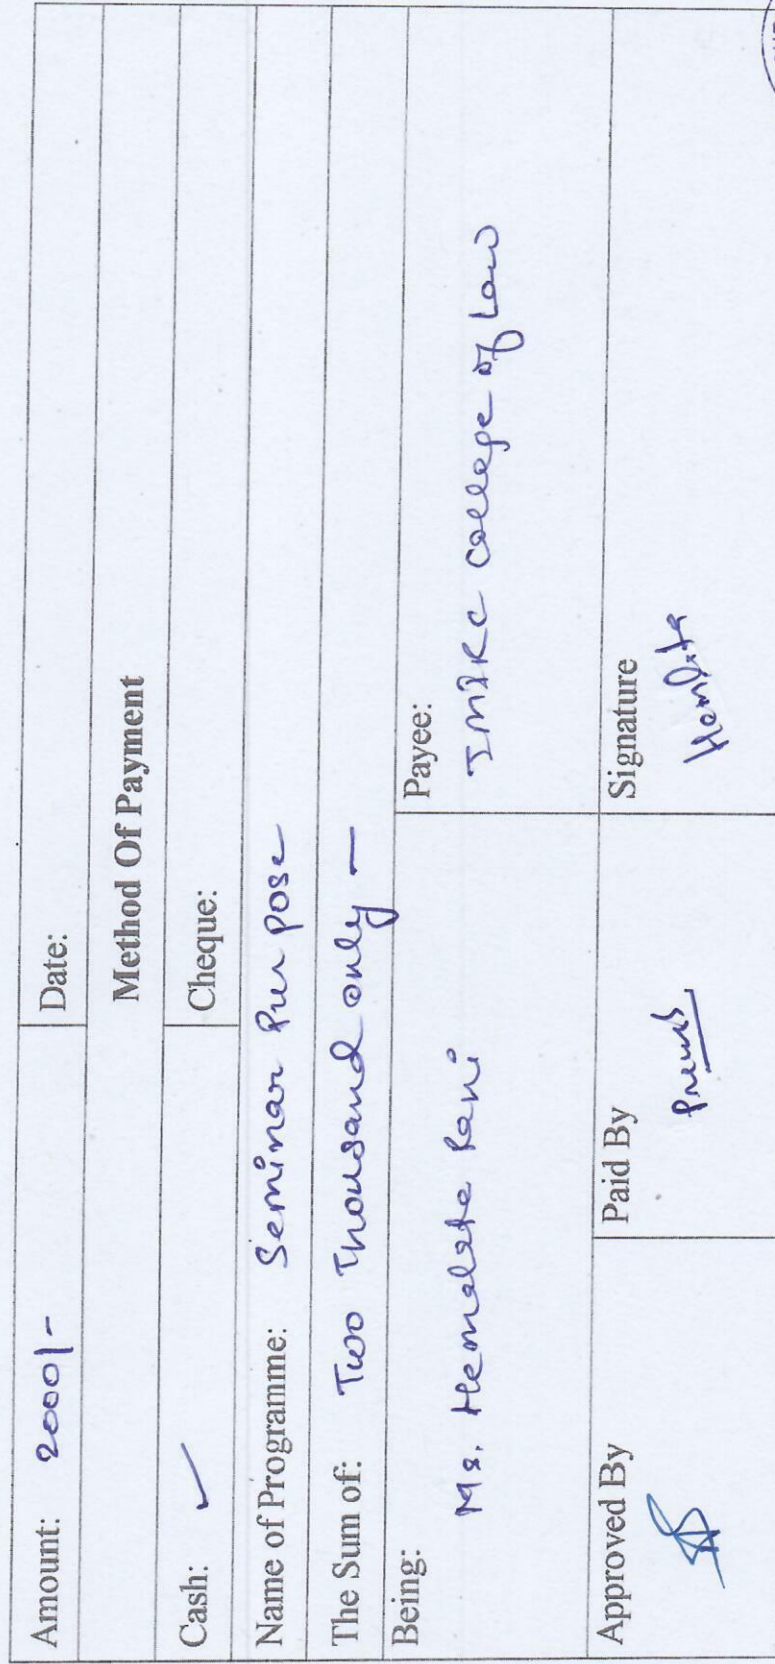 Amount: 2000/-
Date:
Method Of Payment
Cash: ✓
Cheque:
Name of Programme: Seminar Purpose
The Sum of: Two Thousand only —
Being:
Ms. Hemalata Rani
Payee:
IMIRC College of Law
Approved By
Paid By
Signature
Hemlata